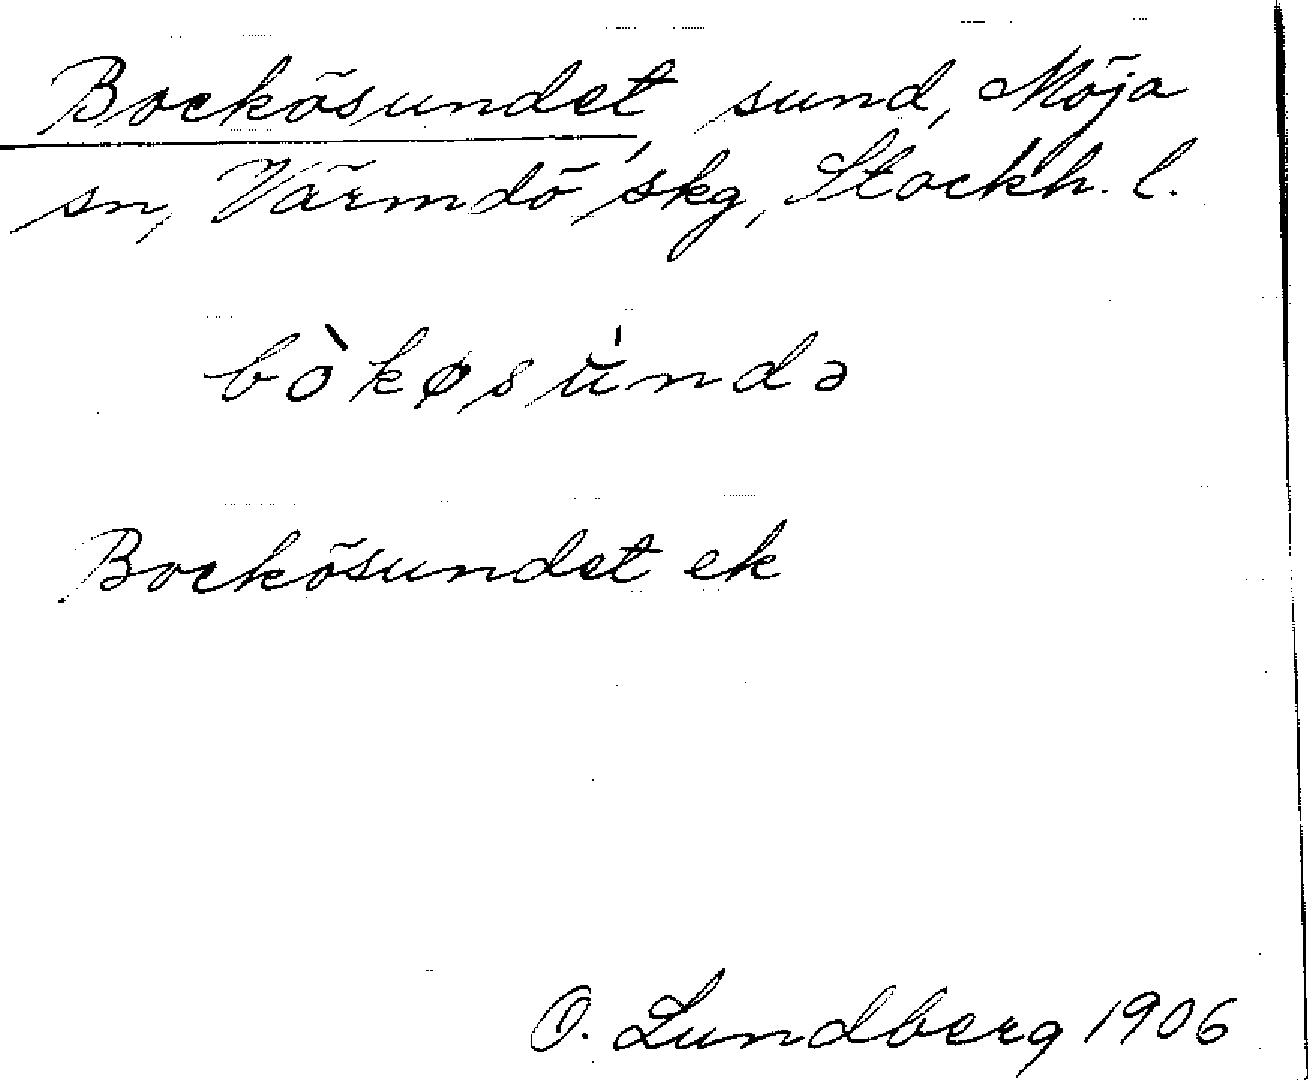 Bockösundet, sund, Möja
sn, Värmdö skg, Stockh. l.
bòkøsúndə
Bockösundet ek
O. Lundberg 1906